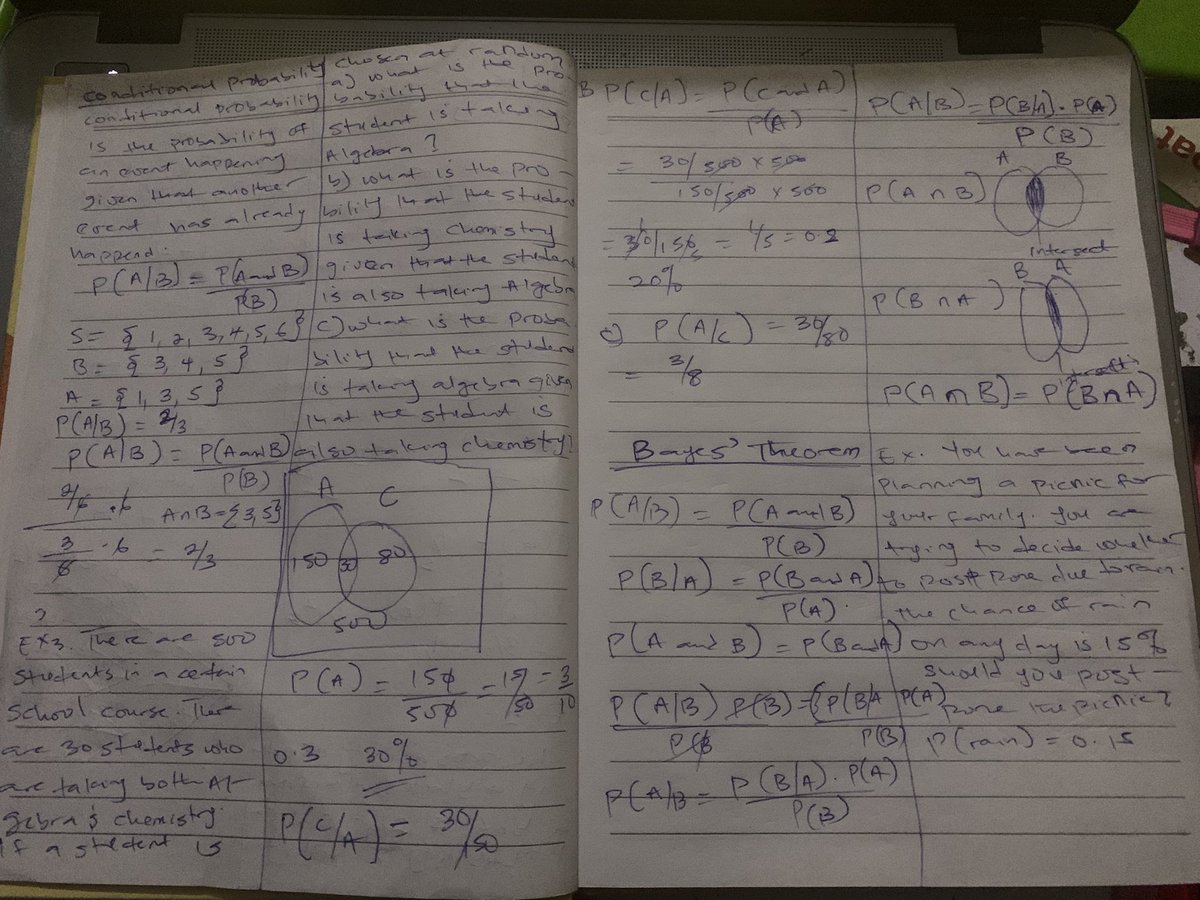 conditional probability
conditional probability
is the probability of
an event happening
given that another
event has already
happend.
P(A/B) = P(A and B)
P(B)
S = { 1, 2, 3, 4, 5, 6 }
B = { 3, 4, 5 }
A = { 1, 3, 5 }
P(A/B) = 2/3
P(A/B) = P(A and B)
P(B)
2/6 · 6
A∩B = {3,5}
3/6 · 6 = 2/3
Ex 3. There are 500
students in a certain
school course. There
are 30 students who
are taking both Al-
gebra & chemistry
if a student is
chosen at random
a) what is the pro-
bability that the
student is taking
Algebra ?
b) what is the pro-
bility that the student
is taking chemistry
given that the student
is also taking Algebra
c) what is the proba
bility that the student
is taking algebra given
that the student is
also taking chemistry?
A C
150 30 80
500
P(A) = 150/500 = 15/50 = 3/10
0.3 30%
P(C/A) = 30/50
B P(C/A) = P(C and A)
P(A)
= 30/500 x 500
150/500 x 500
= 30/150 = 1/5 = 0.2
20%
c) P(A/C) = 30/80
= 3/8
Bayes' Theorem
P(A/B) = P(A and B)
P(B)
P(B/A) = P(B and A)
P(A).
P(A and B) = P(B and A)
P(A/B) P(B) = P(B/A P(A)
P(B P(B)
P(A/B = P(B/A) · P(A)
P(B)
P(A/B) = P(B/A) · P(A)
P(B)
A B
P(A ∩ B)
intersect
B A
P(B ∩ A)
P(A ∩ B) = P(B ∩ A)
Ex. You have been
planning a picnic for
your family. You are
trying to decide whether
to postpone due to rain.
the chance of rain
on any day is 15%
should you post-
pone the picnic?
P(rain) = 0.15